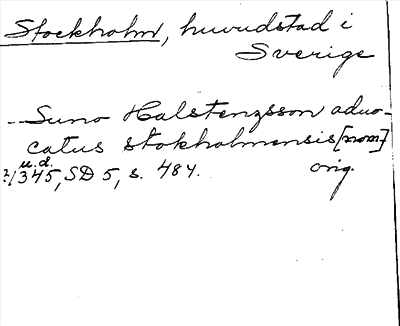 Stockholm, huvudstad i
Sverige
--Suno Halstenzsson aduo-
catus stokholmensis [nom.]
u.d.
?/1345, SD 5, s. 484. orig.